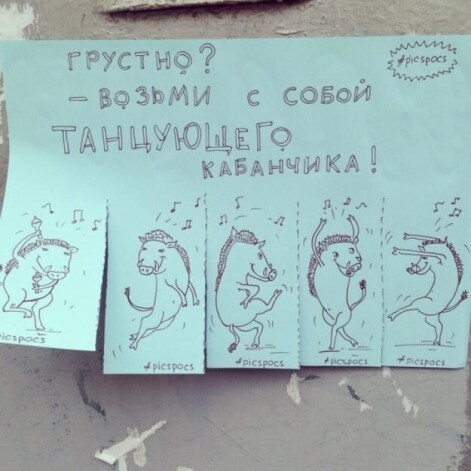 ГРУСТНО?
#picspocs
- ВОЗЬМИ С СОБОЙ
ТАНЦУЮЩЕГО
КАБАНЧИКА!
#picspocs
#picspocs
#picspocs
#picspocs
#picspocs